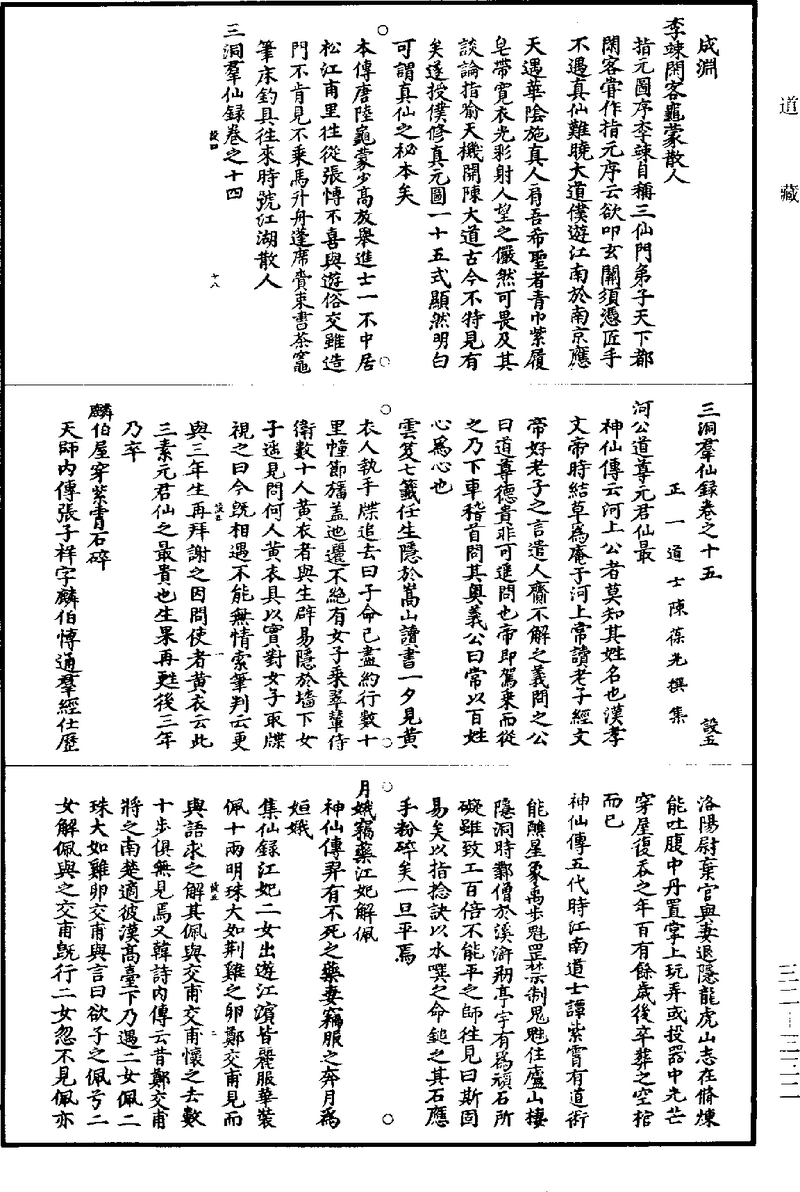 道藏
成淵
李竦閑客龜蒙散人
指元圖序李竦自稱三仙門弟子天下都
閑客嘗作指元序云欲叩玄關須憑匠手
不遇真仙難曉大道僕遊江南於南京應
天遇華陰施真人肩吾希聖者青巾紫履
皂帶寬衣光彩射人望之儼然可畏及其
談論指喻天機開陳大道古今不特見有
矣遂授僕修真元圖一十五式顯然明白
可謂真仙之秘本矣
本傳唐陸龜蒙少高放舉進士一不中居
松江甫里往從張慱不喜與遊俗交雖造
門不肯見不乘馬升舟蓬席賫束書茶竈
筆床釣具往來時號江湖散人
三洞羣仙録卷之十四
設四
十八
三洞羣仙録卷之十五
設五
正一道士陳葆光撰集
河公道尊元君仙最
神仙傳云河上公者莫知其姓名也漢孝
文帝時結草為庵于河上常讀老子經文
帝好老子之言遣人齎不解之義問之公
曰道尊德貴非可遥問也帝即駕乘而從
之乃下車稽首問其奥義公曰常以百姓
心為心也
雲笈七籤任生隱於嵩山讀書一夕見黄
衣人執手牒追去曰子命已盡約行數十
里幢節旛盖迆邐不絶有女子乘翠輦侍
衛數十人黄衣者與生辟易隱於墻下女
子遥見問何人黄衣具以實對女子取牒
視之曰今既相遇不能無情索筆判云更
與三年生再拜謝之因問使者黄衣云此
設五
一
三素元君仙之最貴也生果再甦後三年
乃卒
麟伯屋穿紫霄石碎
天師内傳張子祥字麟伯愽通羣經仕歷
洛陽尉棄官與妻退隱龍虎山志在脩煉
能吐腹中丹置掌上玩弄或投器中光芒
穿屋復吞之年百有餘歲後卒葬之空棺
而已
神仙傳五代時江南道士譚紫霄有道術
能醮星象禹步魁罡禁制鬼魅住廬山棲
隱洞時鄰僧於溪滸剏亭宇有為頑石所
礙雖致工百倍不能平之師往見曰斯固
易矣以指捻訣以水噀之命鎚之其石應
手粉碎矣一旦平焉
月娥竊藥江妃解佩
神仙傳羿有不死之藥妻竊服之奔月為
姮娥
集仙録江妃二女出遊江濱皆麗服華裝
佩十兩明珠大如荆雞之卵鄭交甫見而
設五
二
與語求之解其佩與交甫交甫懷之去數
十步俱無見焉又韓詩内傳云昔鄭交甫
將之南楚適彼漢髙臺下乃遇二女佩二
珠大如雞卵交甫與言曰欲子之佩兮二
女解佩與之交甫既行二女忽不見佩亦
三二—三二二